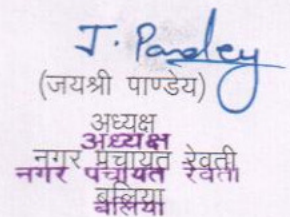 J. Pandey
(जयश्री पाण्डेय)
अध्यक्ष
अध्यक्ष
नगर पंचायत रेवती
नगर पंचायत रेवती
बलिया
बलिया